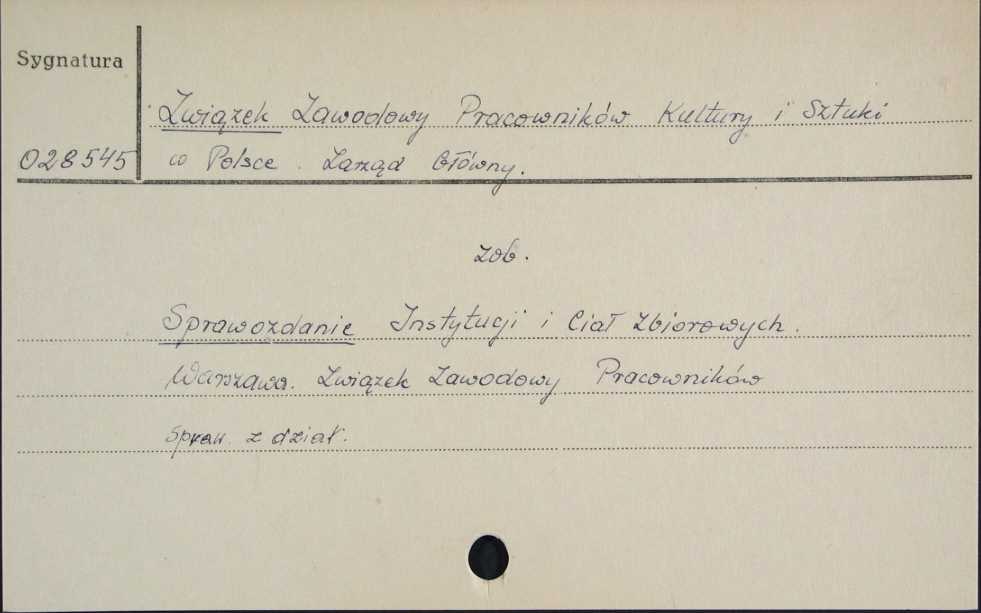 Sygnatura
Związek Zawodowy Pracowników Kultury i Sztuki
028545 w Polsce. Zarząd Główny.
zob.
Sprawozdanie Instytucji i Ciał Zbiorowych.
Warszawa. Związek Zawodowy Pracowników
Spraw. z dział.